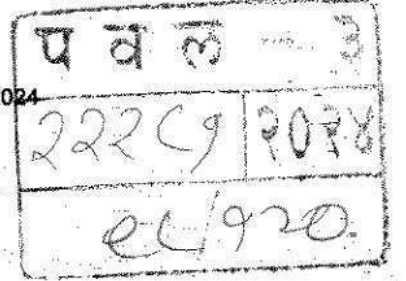 प व ल - ३
024
२२२८१ २०२४
९८/१२०